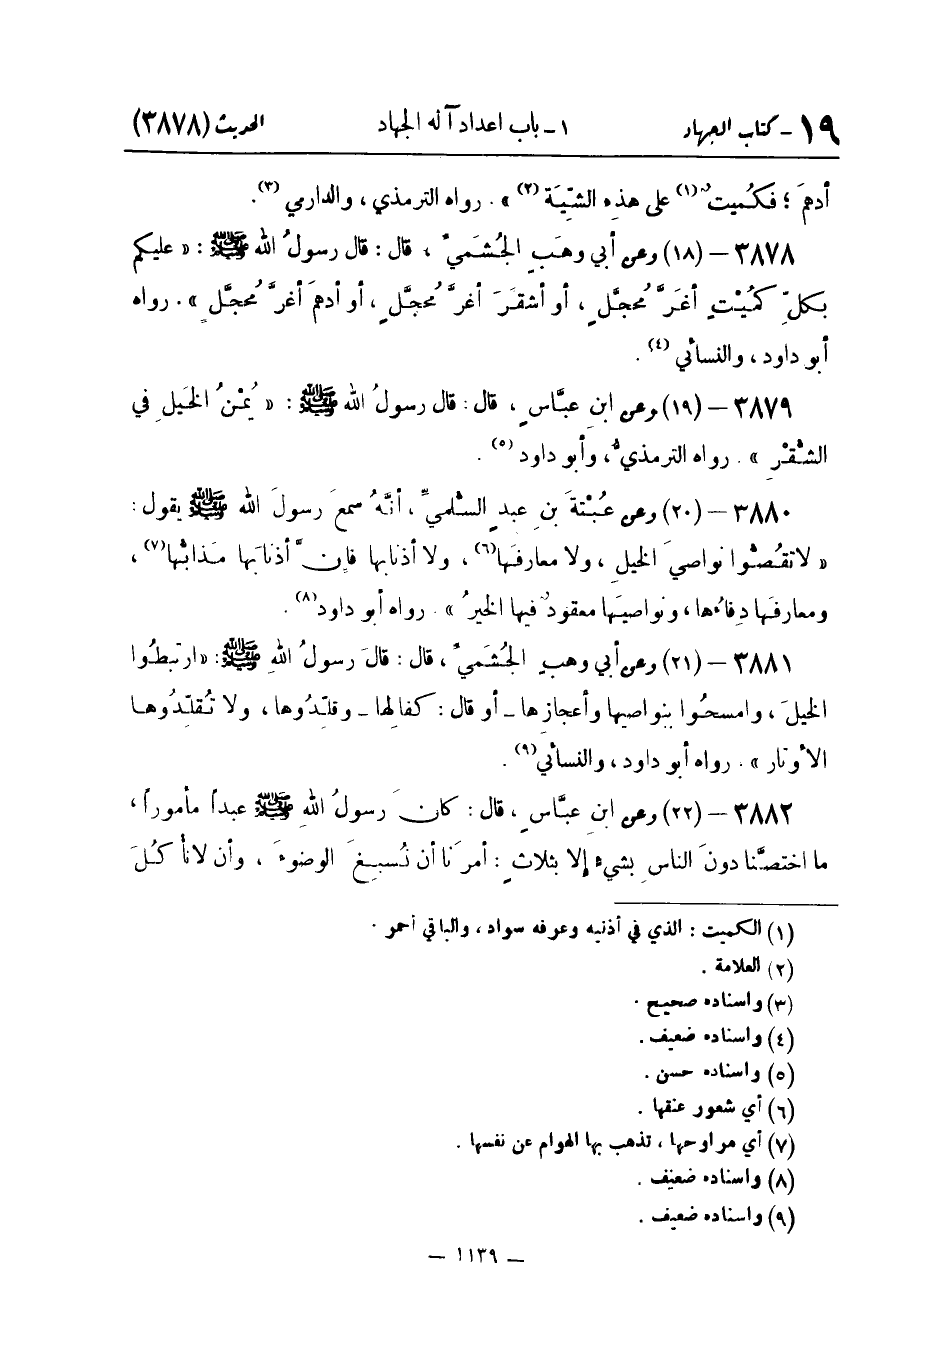 ١٩ - كتاب الجهاد ١ - باب اعداد آلة الجهاد الحديث (٣٨٧٨)
أدهمَ ؛ فكُميتٌ(١) على هذهِ الشّيَةِ(٢) » . رواه الترمذي ، والدارمي(٣) .
٣٨٧٨ - (١٨) وعن أبي وهَبٍ الجُشَميِّ ، قال : قال رسولُ الله ﷺ : « عليكم
بكلِّ كمَيْتٍ أغَرَّ مُحجَّلٍ ، أو أشقرَ أغرَّ مُحجَّلٍ ، أو أدهمَ أغرَّ مُحجَّلٍ » . رواه
أبو داود ، والنسائي(٤) .
٣٨٧٩ - (١٩) وعن ابنِ عبَّاسٍ ، قال : قال رسولُ الله ﷺ : « يُمْنُ الخَيلِ في
الشُّقْرِ » . رواه الترمذيُّ ، وأبو داود(٥) .
٣٨٨٠ - (٢٠) وعن عُتْبةَ بنِ عبدٍ السُّلميِّ ، أنَّهُ سمعَ رسولَ الله ﷺ يقول :
« لا تقُصُّوا نواصيَ الخيل ، ولا معارفَها(٦) ، ولا أذنابها فإنَّ أذنابَها مَذابُّها(٧) ،
ومعارفَها دِفاءُها ، ونواصيَها معقودٌ فيها الخيرُ » . رواه أبو داود(٨) .
٣٨٨١ - (٢١) وعن أبي وهبٍ الجُشَميِّ ، قال : قالَ رسولُ اللهِ ﷺ : « ارتبطُوا
الخيلَ ، وامسحُوا بنواصيها وأعجازِها - أو قال : كفالِها - وقلِّدُوها ، ولا تُقلِّدُوها
الأوتار » . رواه أبو داود ، والنسائي(٩) .
٣٨٨٢ - (٢٢) وعن ابنِ عبَّاسٍ ، قال : كانَ رسولُ اللهِ ﷺ عبداً مأموراً ،
ما اختصَّنا دونَ الناسِ بشيءٍ إلا بثلاثٍ : أمرَنا أن نُسبِغَ الوضوءَ ، وأن لا نأكُلَ
(١) الكميت : الذي في أذنيه وعرفه سواد ، والباقي أحمر .
(٢) العلامة .
(٣) واسناده صحيح .
(٤) واسناده ضعيف .
(٥) واسناده حسن .
(٦) أي شعور عنقها .
(٧) أي مراوحها ، تذهب بها الهوام عن نفسها .
(٨) واسناده ضعيف .
(٩) واسناده ضعيف .
- ١١٣٩ -